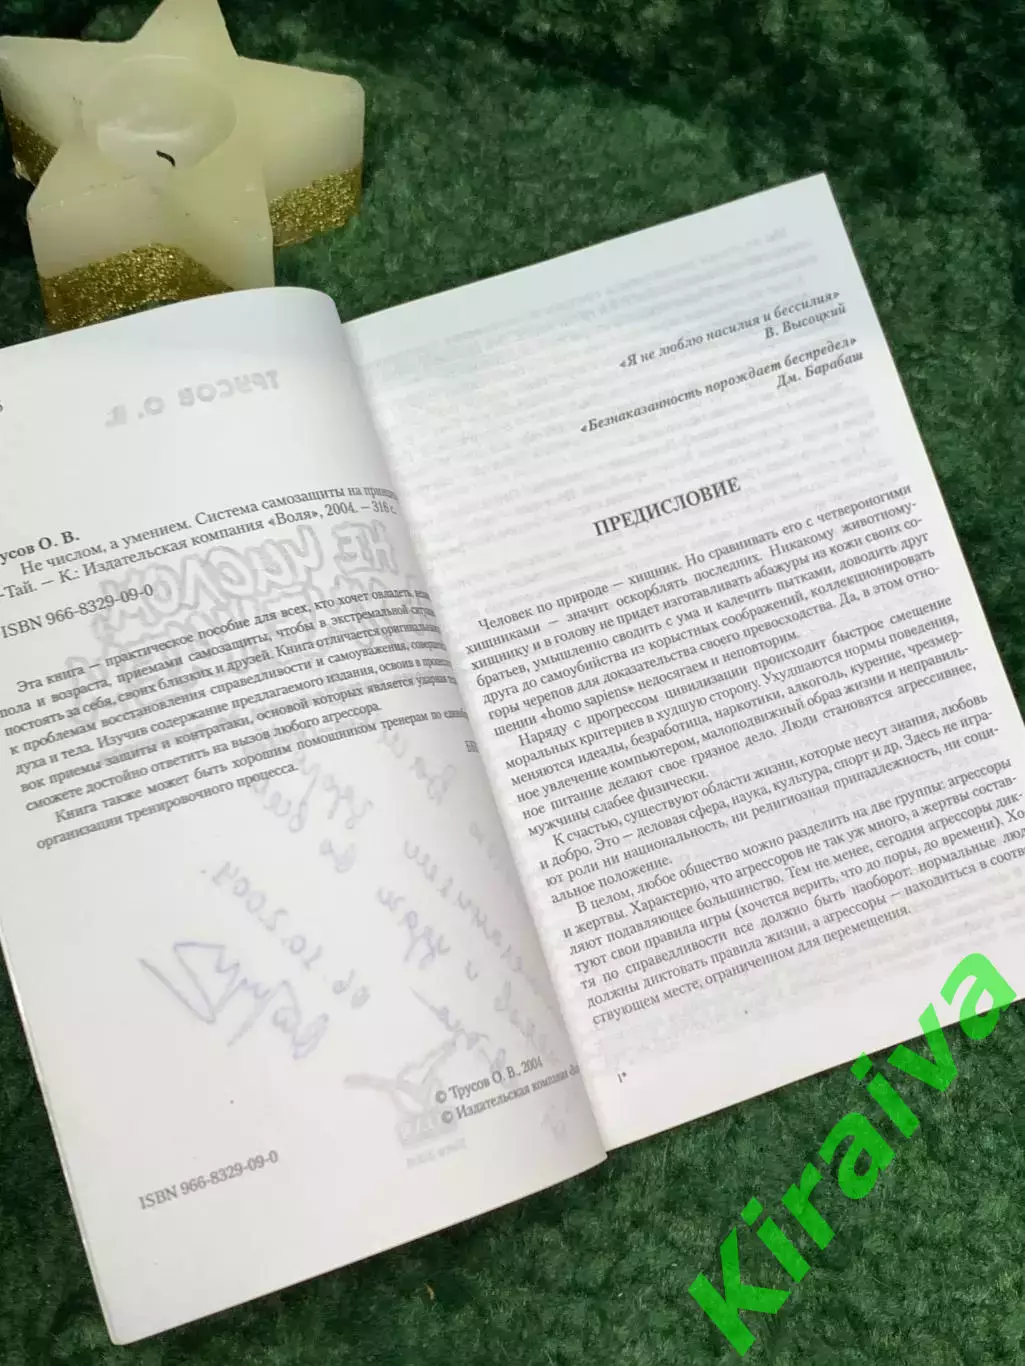 русов О. В.
Не числом, а умением. Система самозащиты на принци
-Тай. — К.: Издательская компания «Воля», 2004. – 316 с.
ISBN 966-8329-09-0
Эта книга — практическое пособие для всех, кто хочет овладеть,
пола и возраста, приемами самозащиты, чтобы в экстремальной
постоять за себя, своих близких и друзей. Книга отличается
к проблемам восстановления справедливости и самоуважения,
духа и тела. Изучив содержание предлагаемого издания, освоив в
вок приемы защиты и контратаки, основой которых является ударная
сможете достойно ответить на вызов любого агрессора.
Книга также может быть хорошим помощником тренерам по
организации тренировочного процесса.
© Трусов О. В., 2004
© Издательская компания
ISBN 966-8329-09-0
«Я не люблю насилия и бессилия»
В. Высоцкий
«Безнаказанность порождает беспредел»
Дм. Барабаш
ПРЕДИСЛОВИЕ
Человек по природе — хищник. Но сравнивать его с четвероногими
хищниками — значит оскорблять последних. Никакому животному-
хищнику и в голову не придет изготавливать абажуры из кожи своих со-
братьев, умышленно сводить с ума и калечить пытками, доводить друг
друга до самоубийства из корыстных соображений, коллекционировать
горы черепов для доказательства своего превосходства. Да, в этом отно-
шении «homo sapiens» недосягаем и неповторим.
Наряду с прогрессом цивилизации происходит быстрое смещение
моральных критериев в худшую сторону. Ухудшаются нормы поведения,
меняются идеалы, безработица, наркотики, алкоголь, курение, чрезмер-
ное увлечение компьютером, малоподвижный образ жизни и неправиль-
ное питание делают свое грязное дело. Люди становятся агрессивнее,
мужчины слабее физически.
К счастью, существуют области жизни, которые несут знания, любовь
и добро. Это — деловая сфера, наука, культура, спорт и др. Здесь не игра-
ют роли ни национальность, ни религиозная принадлежность, ни соци-
альное положение.
В целом, любое общество можно разделить на две группы: агрессоры
и жертвы. Характерно, что агрессоров не так уж много, а жертвы состав-
ляют подавляющее большинство. Тем не менее, сегодня агрессоры дик-
туют свои правила игры (хочется верить, что до поры, до времени). Хо-
тя по справедливости все должно быть наоборот: нормальные люд
должны диктовать правила жизни, а агрессоры — находиться в соотв
ствующем месте, ограниченном для перемещения.
1*
Kiraiva